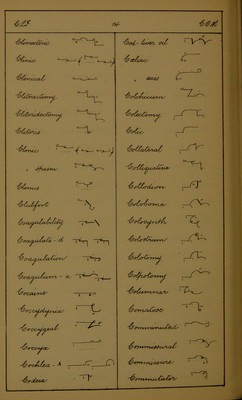 Climacteric
Clinic
Clinical
Clitorectomy
Clitoridectomy
Clitoris
Clonic
" spasm
Clonus
Clubfoot
Coagulability
Coagulate - d
Coagulation
Coagulum - a
Cocaine
Coccydynia
Coccygeal
Coccyx
Cochlea - r
Codeia
Cod-liver oil
Cœliac
" axis
Colchicum
Colectomy
Colic
Collateral
Colliquative
Collodion
Coloboma
Colocynth
Colostrum
Colotomy
Colpotomy
Columnar
Comatose
Comminuted
Commissural
Commissure
Commutator